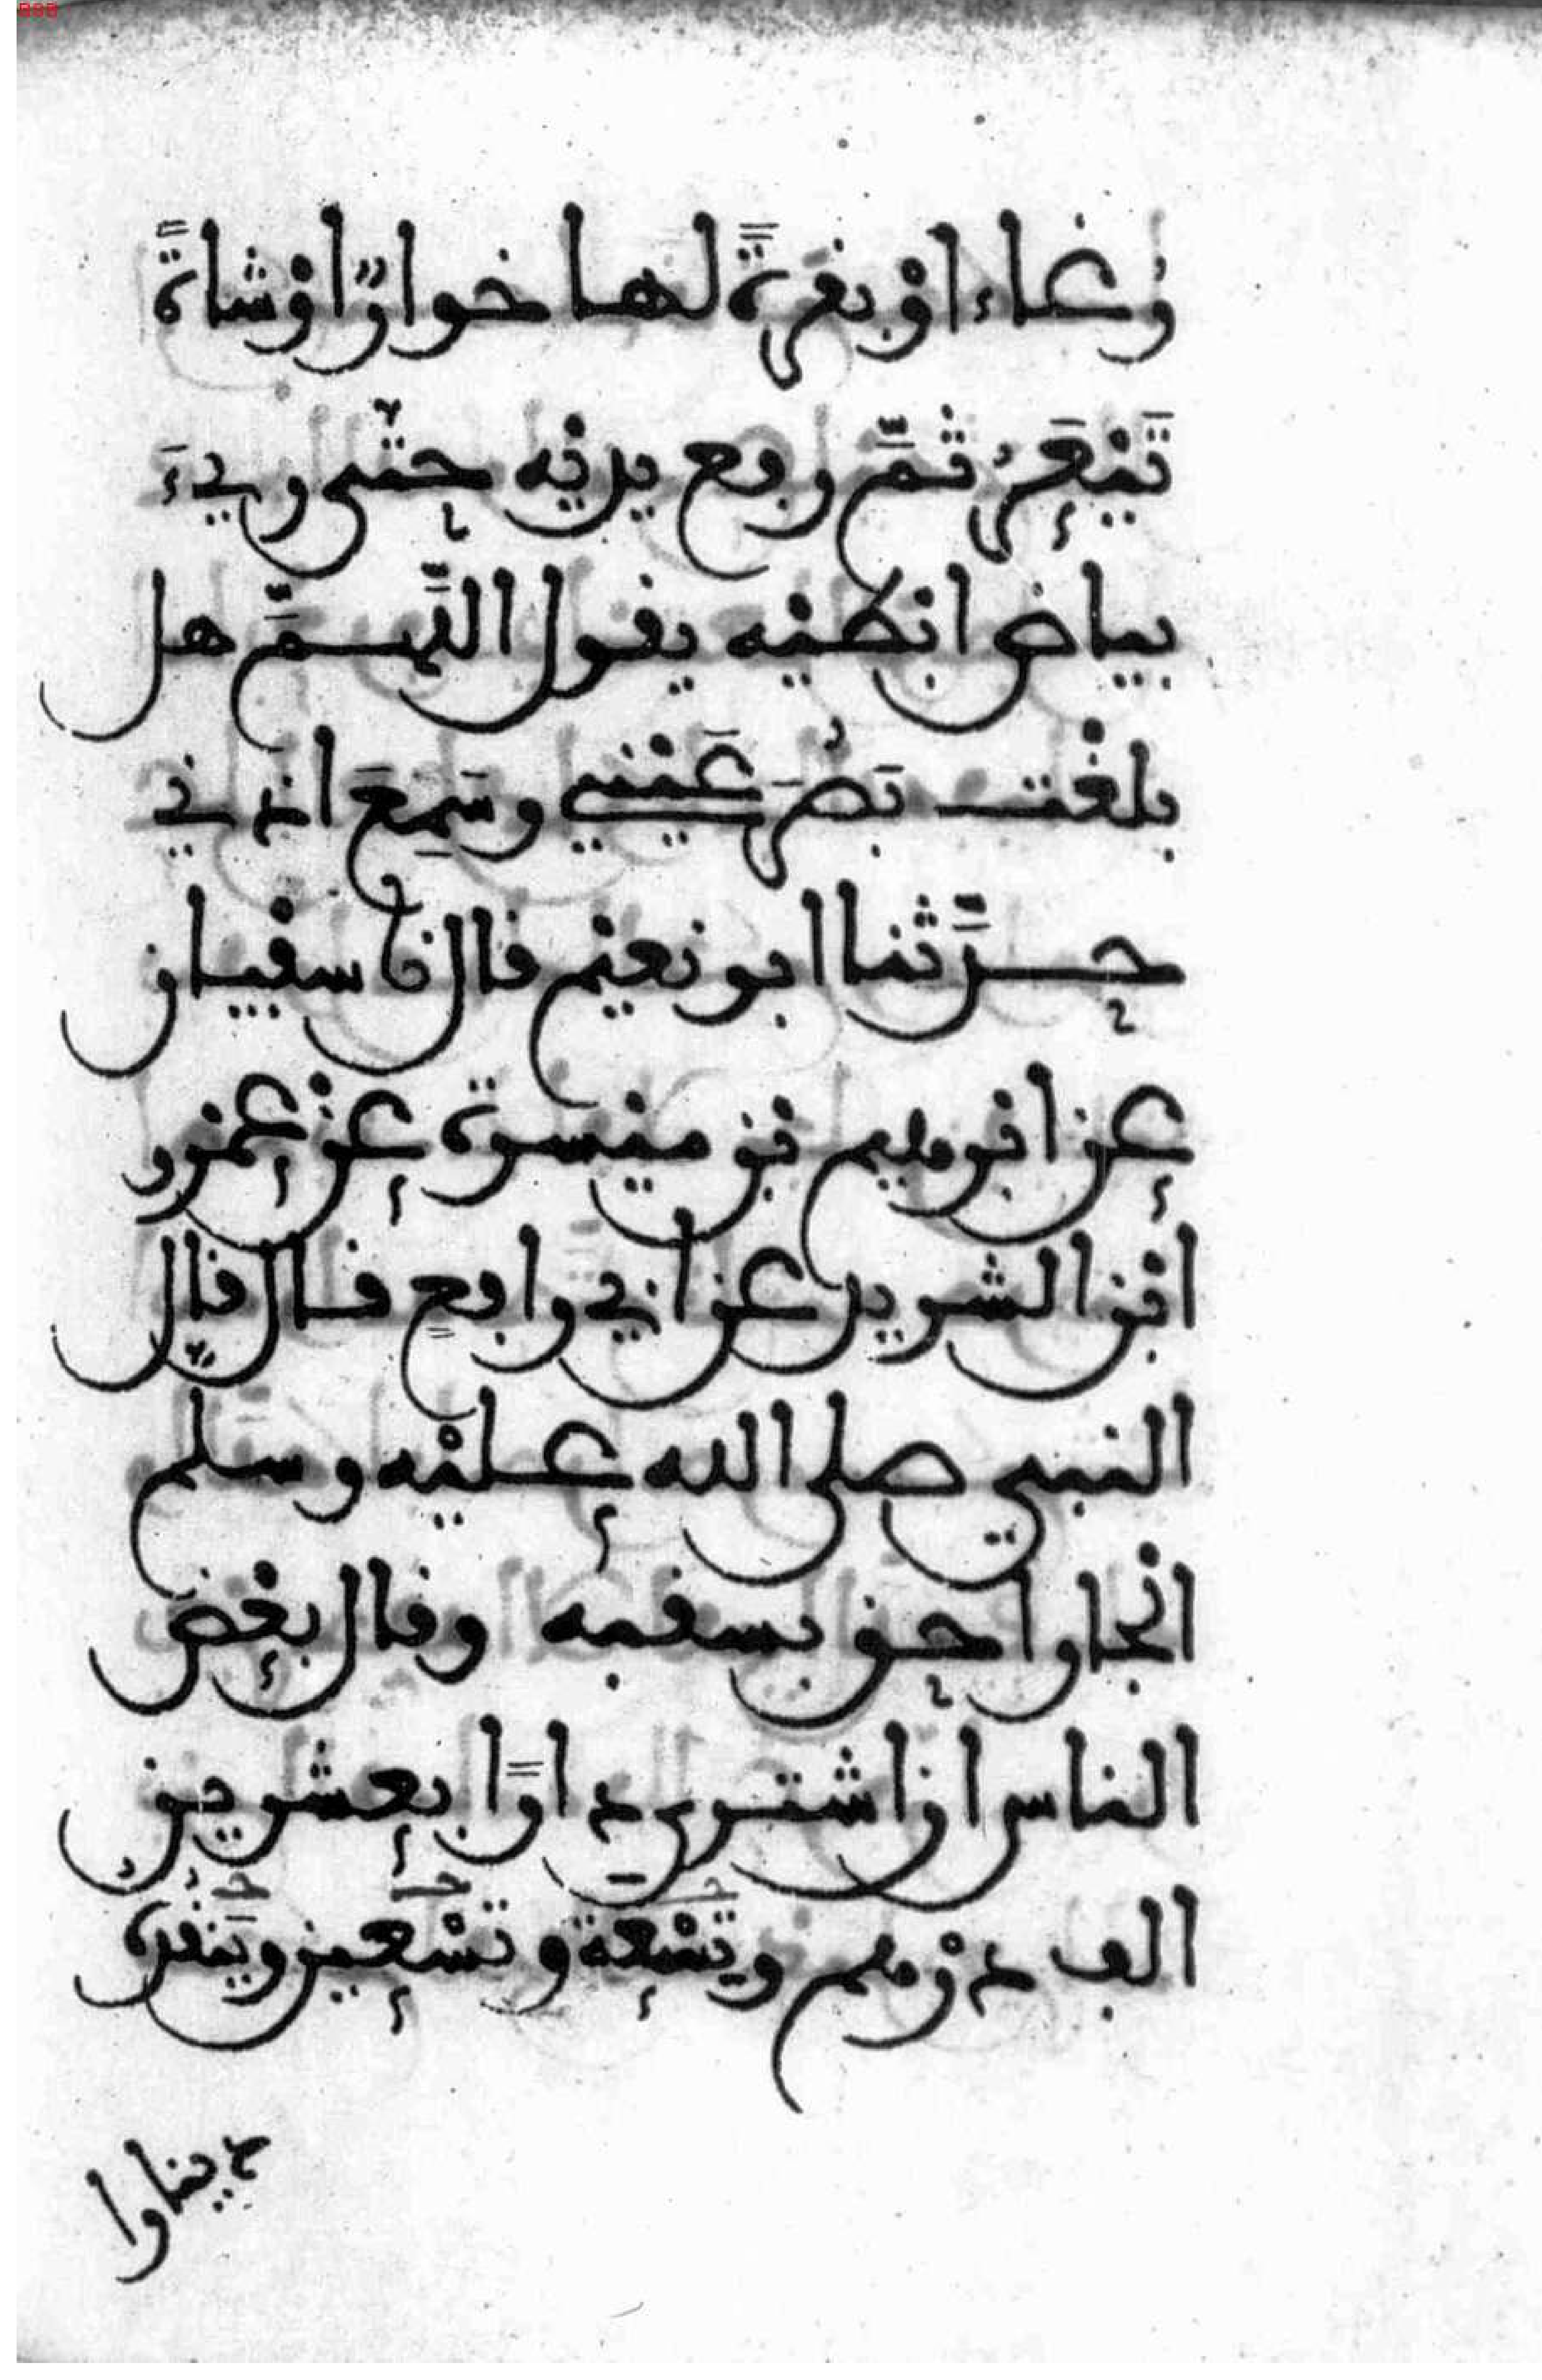 رُغاء اوْ بقرةً لها خوارٌ اوْ شاةً
تَيْعَرُ ثمّ رفع يديْه حتّى رءي
بياض ابطيْه يقول اللّهمّ هل
بلغْت بَصُرَ عَيْني وسَمِعَ اذني
حدّثنا ابو نعيْم قال نا سفيان
عن ابرهيم بن ميْسرة عنْ عمْرو
ابْن الشريد عن ابي رافعٍ قال قال
النبي صلى الله عليْه وسلم
الْجار احق بسقبه وقال بعْض
الناس ان اشترى دارًا بعشرين
الف درْهم وتِسْعة وتسْعين ويَنْقده
دينارا